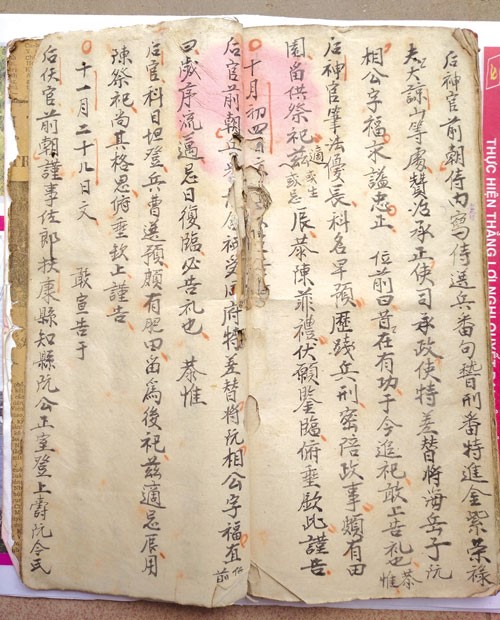 后神官前朝侍内寫侍選兵番句暬刑番特進金紫荣禄
大夫諒山等處贊治承正使司承政使特差替將海岳子阮
相公字福求謚忠正 位前曰昔在有功于今追祀敢上告礼也 恭惟
后神官筆法優長科名早預歷踐兵刑密陪政事頗有田
園留供祭祀兹適或生或忌辰恭陳菲禮伏願鑒臨俯垂歆此謹告
十月初四日文
后官前朝兵 神受同府特差替將阮相公字福直 位前
曰歲序流邁忌日復臨必告礼也 恭惟
后官科目坦登兵曹選預頗有肥田留為後祀兹適忌辰用
陳祭祀尚其格思俯垂歆上謹告
十一月二十九日文 敢宣告于
后佚官前朝謹事佐郎扶康縣知縣阮公正室登上壽阮令式
THỰC HIỆN THẮNG LỢI NGHỊ QUYẾT